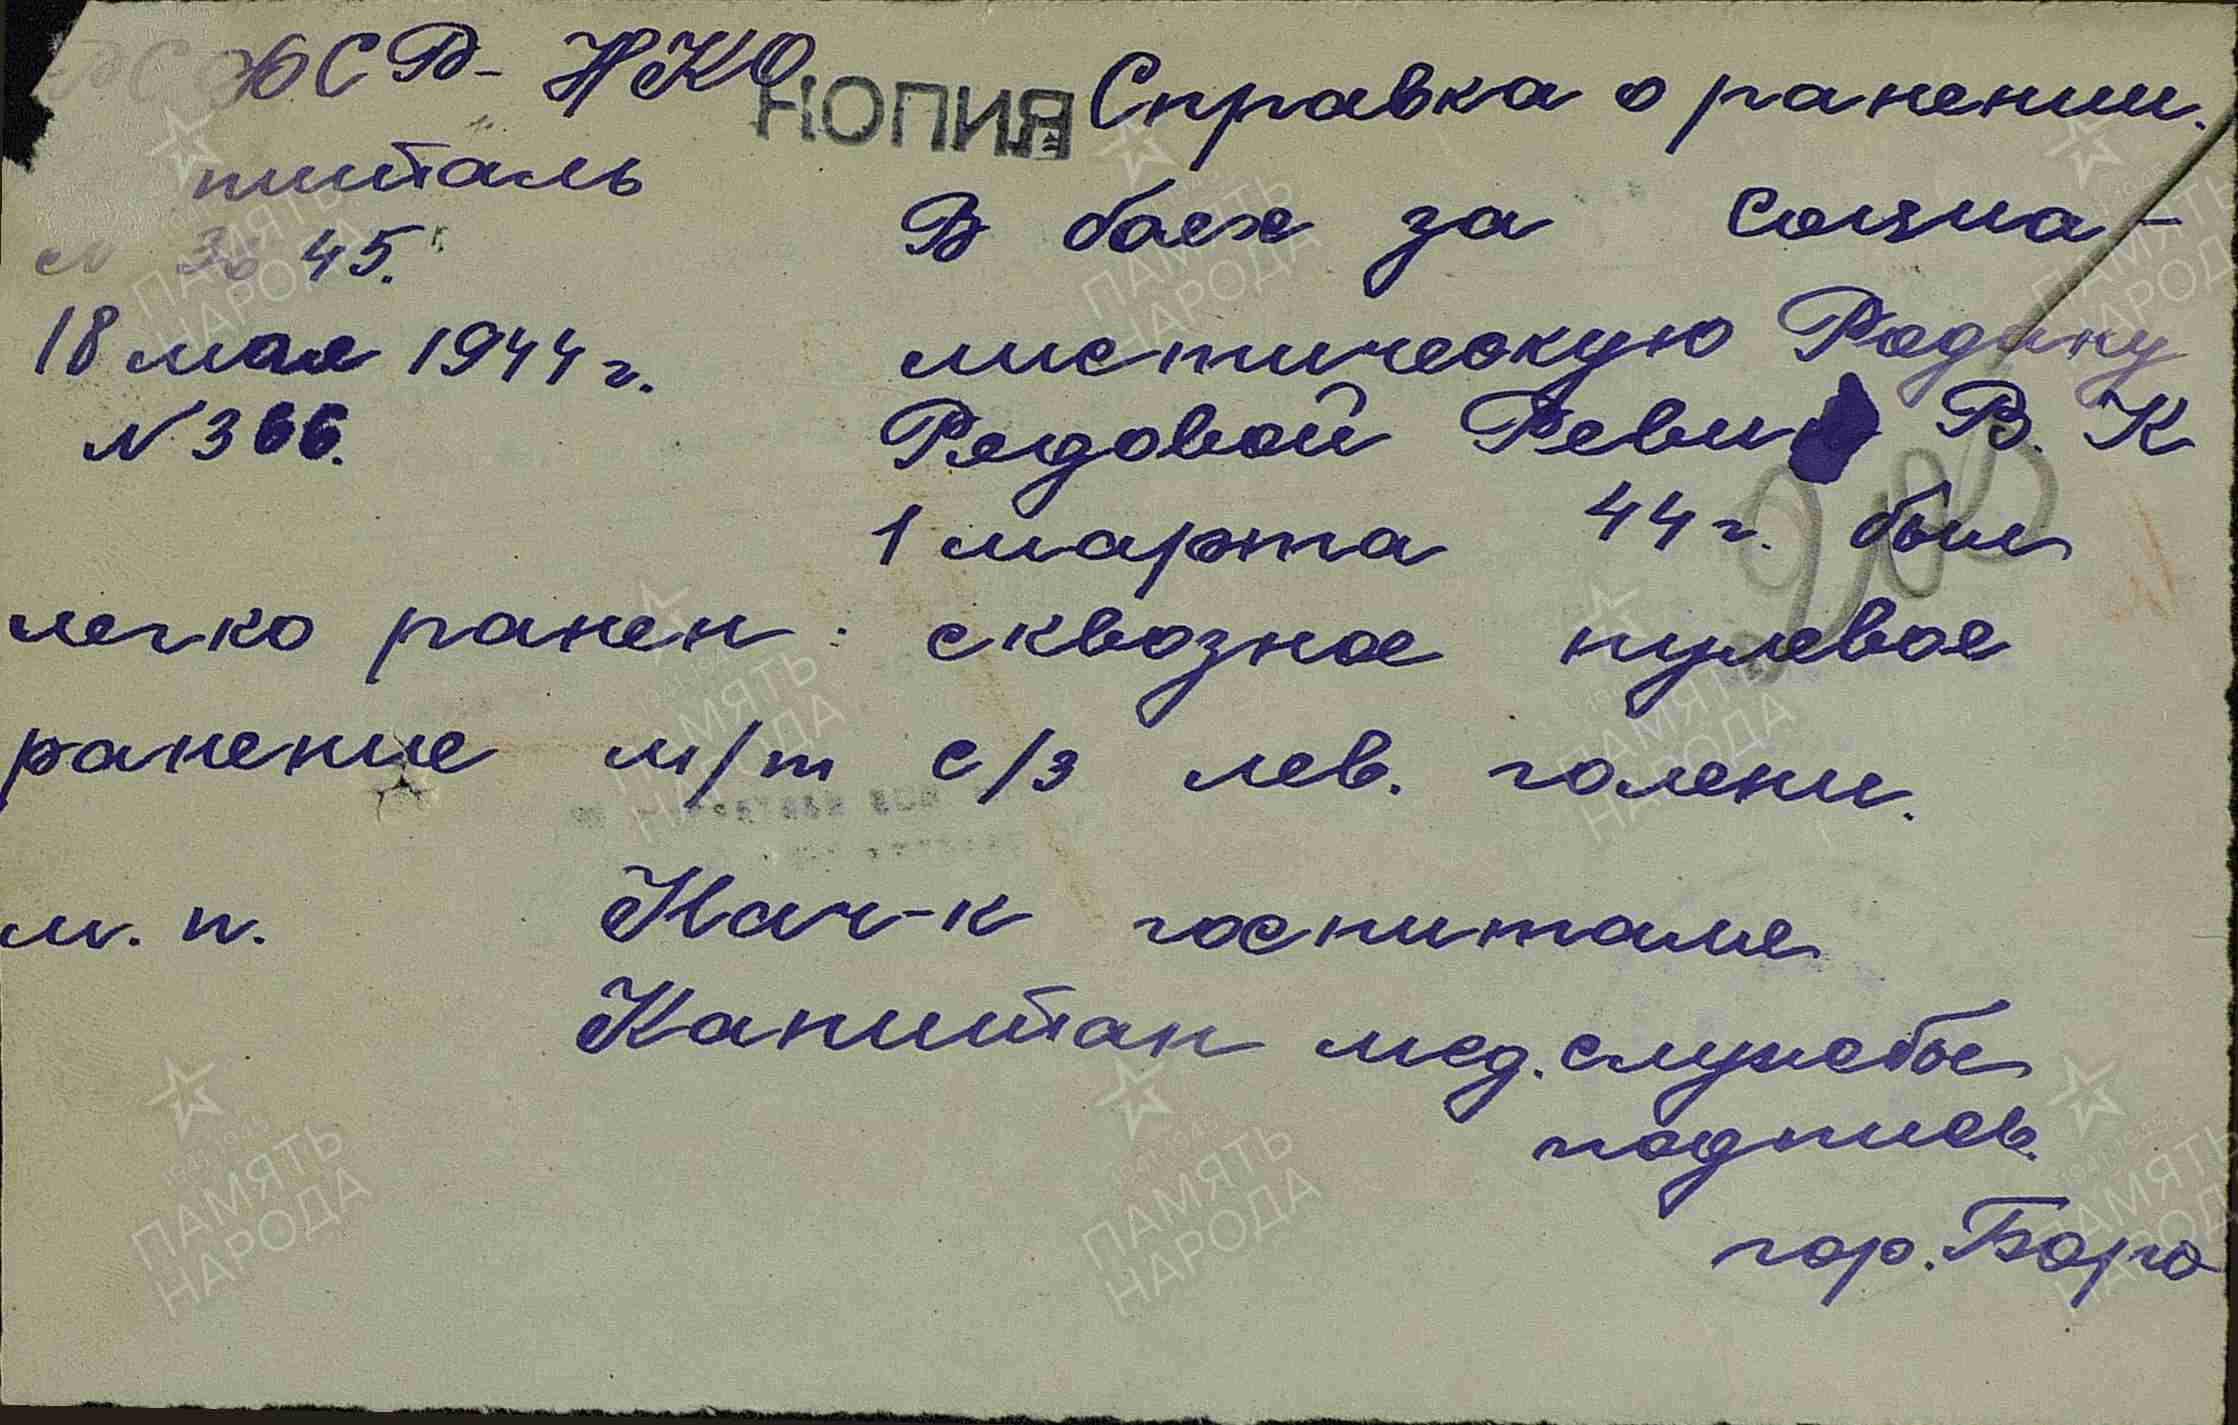 РСФСР - НКО КОПИЯ Справка о ранении.
питаль
В боях за социа-
N 3645.
18 мая 1944 г.
листическую Родину
N 366.
Рядовой Реви В. К
1 марта 44 г. был
легко ранен: сквозное пулевое
ранение м/т с/з лев. голени.
м. п. Нач-к госпиталя
Капитан мед. службы
подпись.
гор. Боро